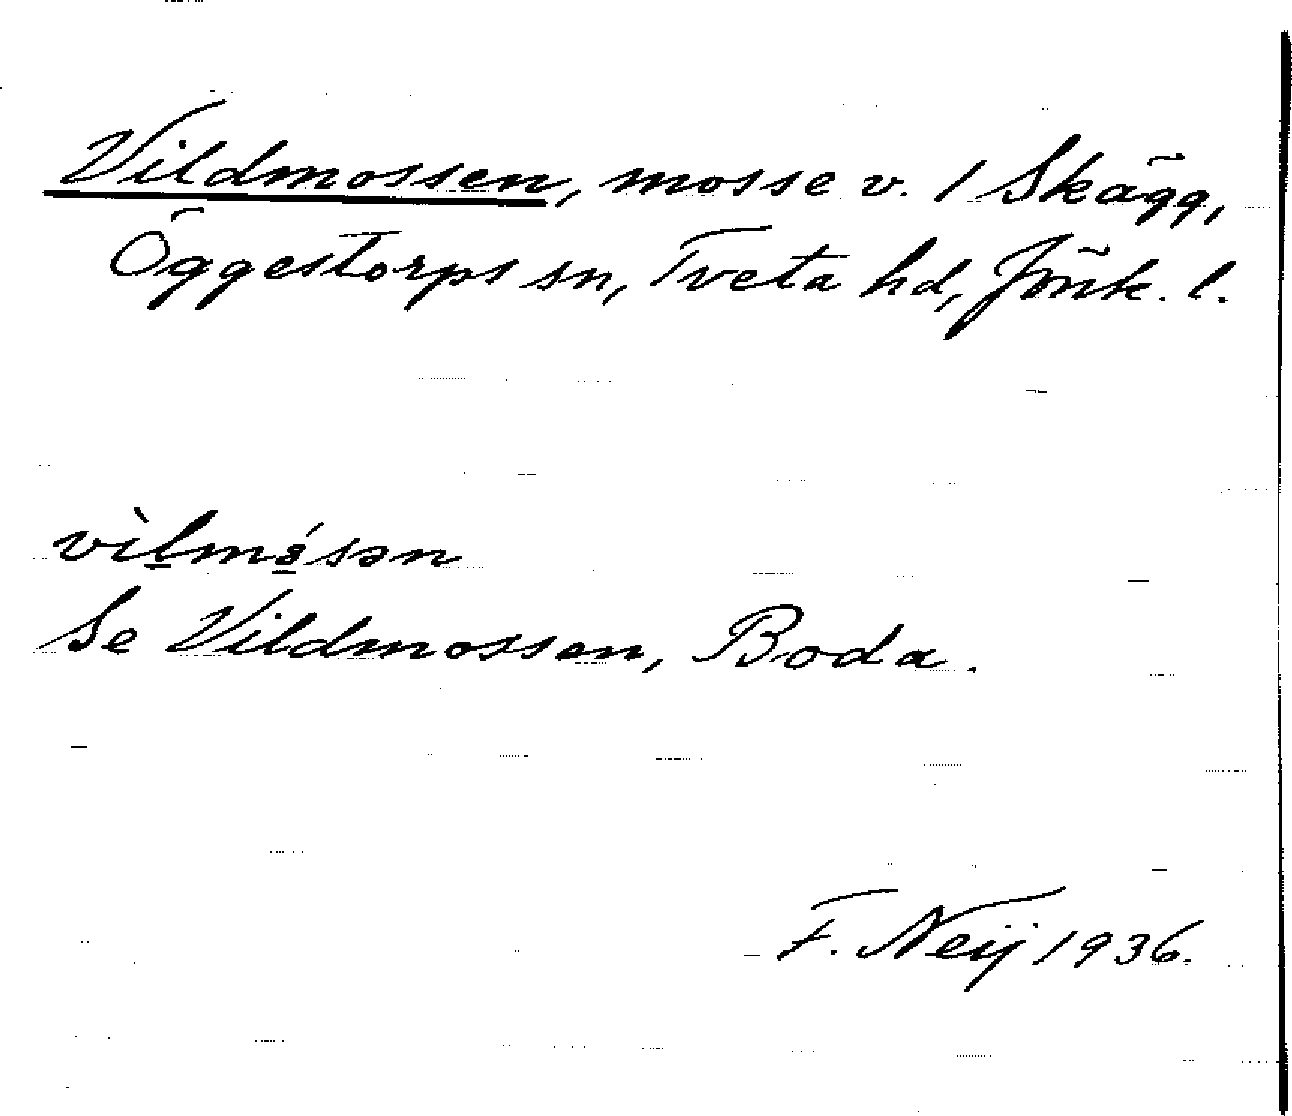 Vildmossen, mosse v. / Skägg,
Öggestorps sn, Tveta hd, Jönk. l.
Se Vildmossen, Boda.
F. Neij 1936.